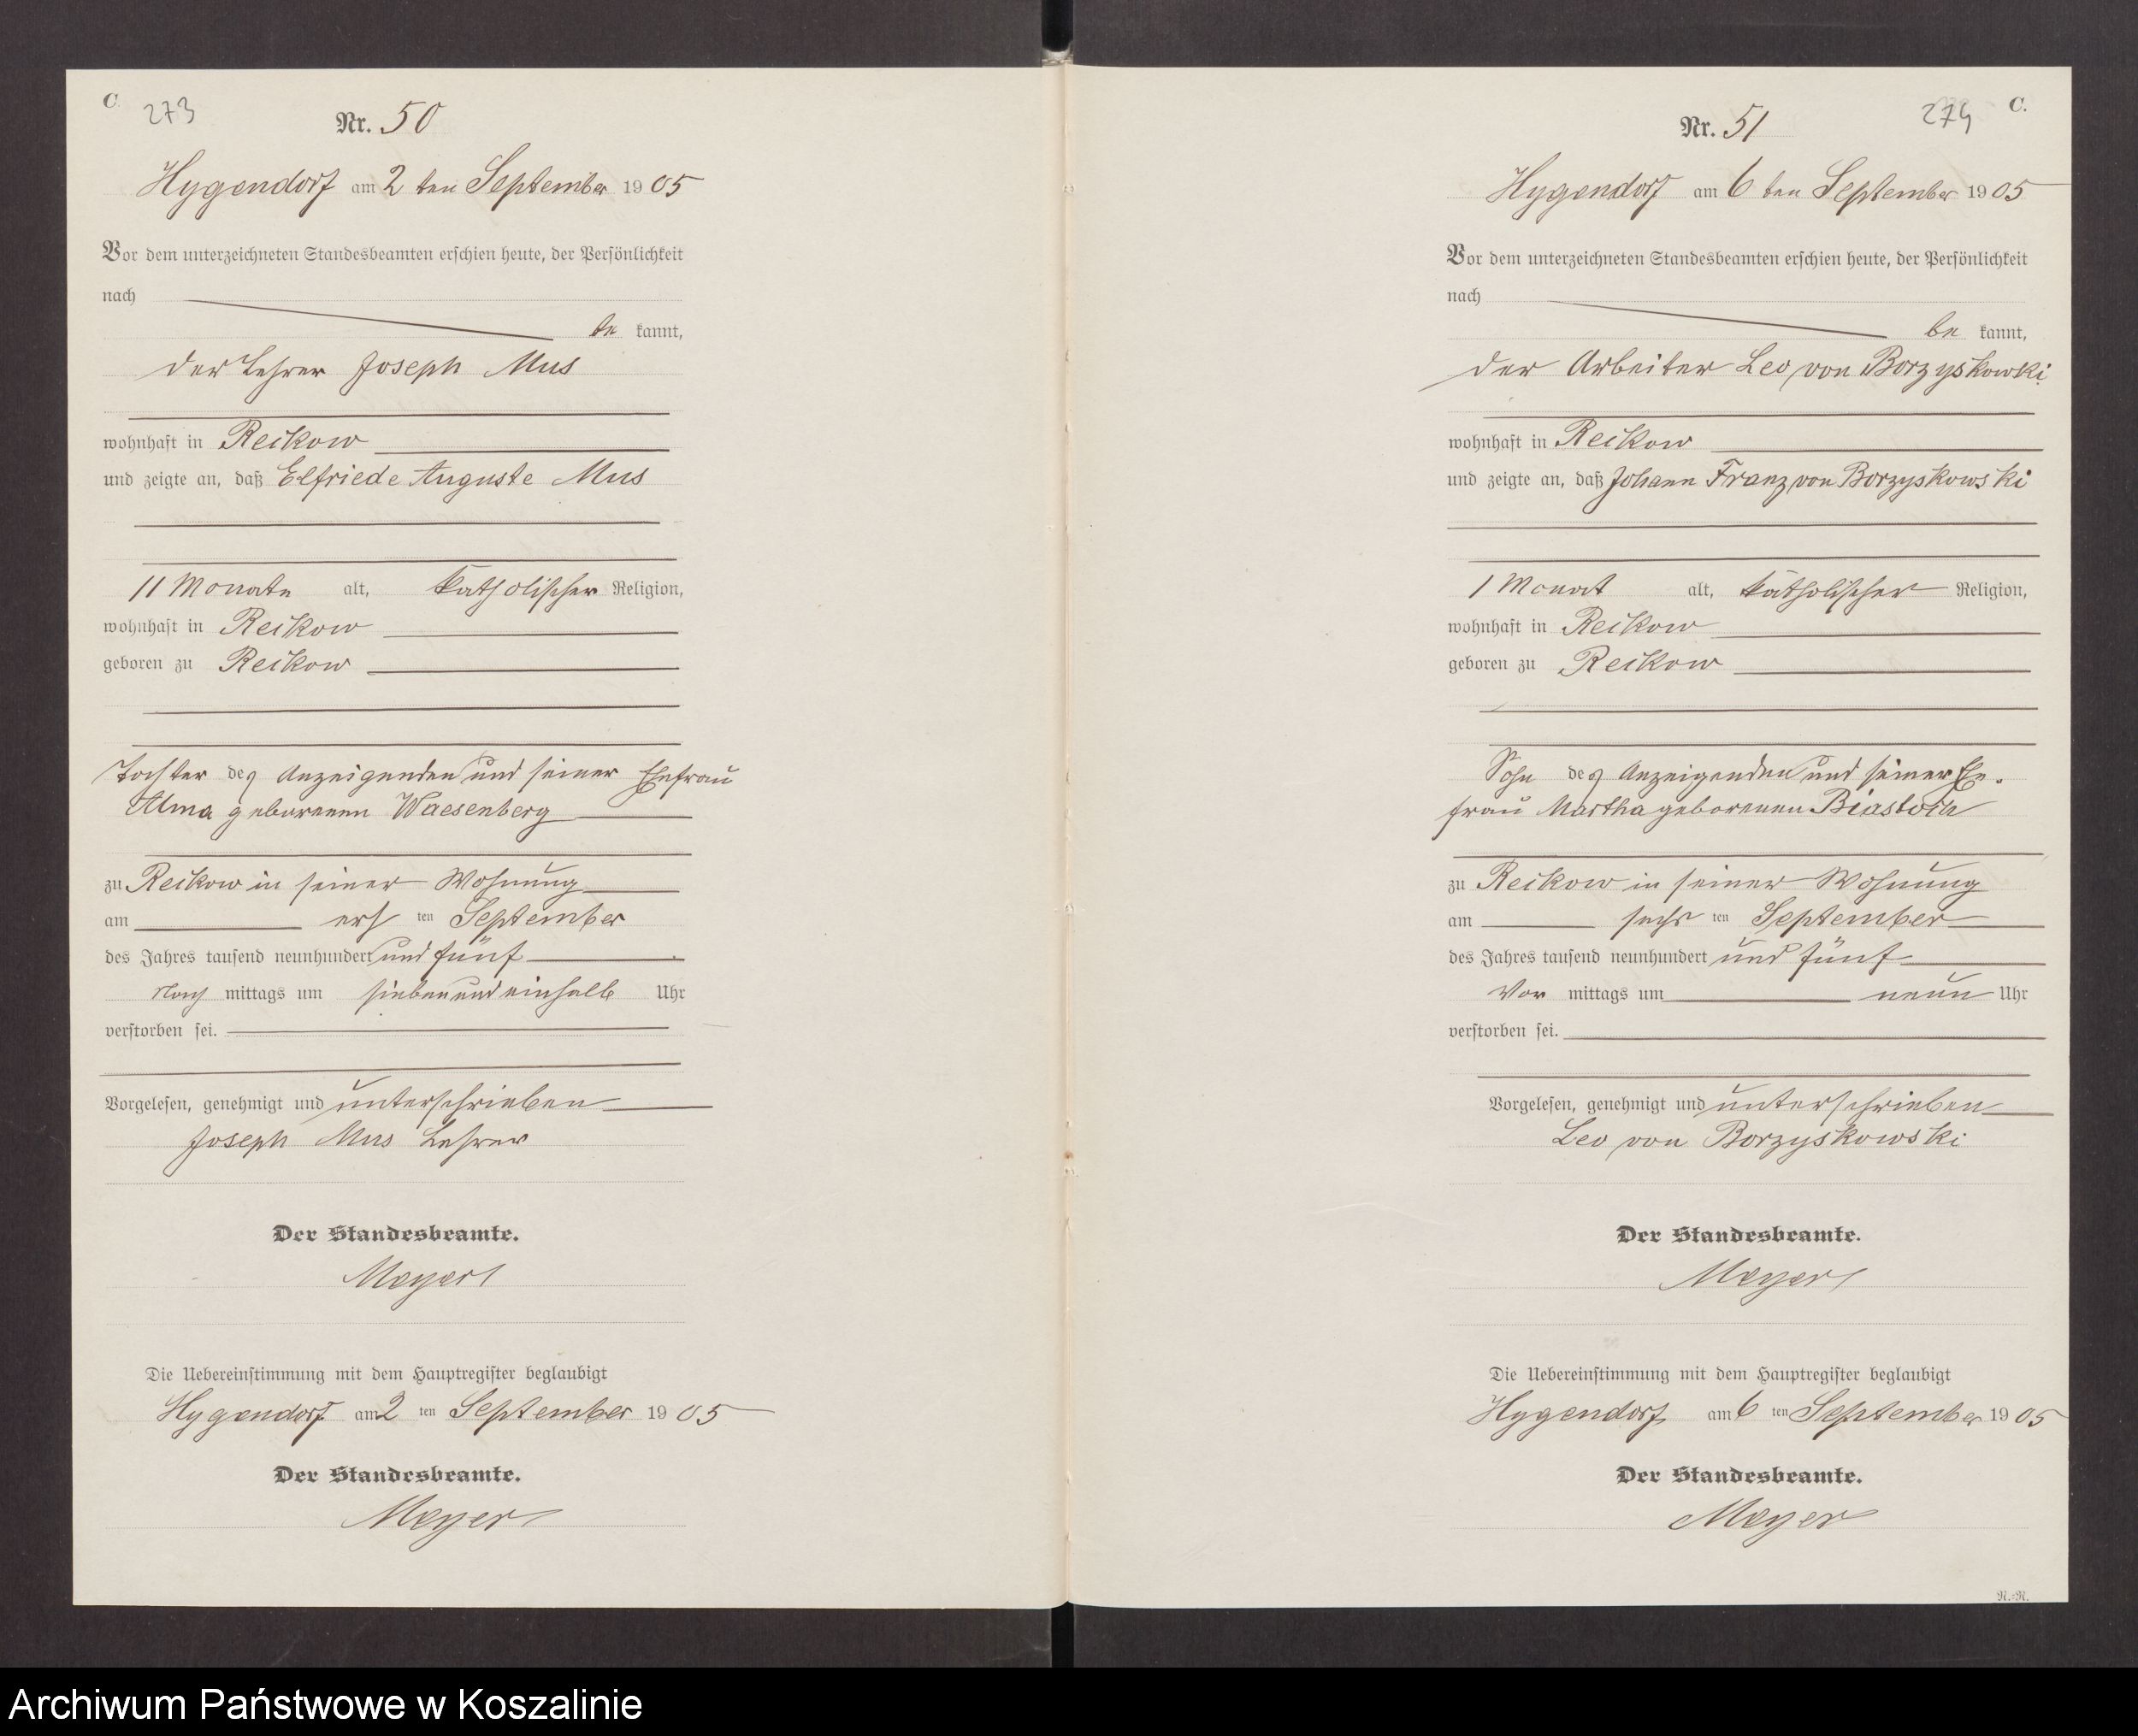 C.
273
Nr. 50
Hygendorf am 2 ten September 1905
Vor dem unterzeichneten Standesbeamten erschien heute, der Persönlichkeit
nach
be kannt,
der Lehrer Joseph Mus
wohnhaft in Reikow
und zeigte an, daß Elfriede Auguste Mus
11 Monate alt, katholischer Religion,
wohnhaft in Reikow
geboren zu Reikow
Tochter des Anzeigenden und seiner Ehefrau
Alma geborenen Waesenberg
zu Reikow in seiner Wohnung
am ersten September
des Jahres tausend neunhundert und fünf
Nach mittags um sieben und einhalb Uhr
verstorben sei.
Vorgelesen, genehmigt und unterschrieben
Joseph Mus Lehrer
Der Standesbeamte.
Meyer
Die Uebereinstimmung mit dem Hauptregister beglaubigt
Hygendorf am 2 ten September 1905
Der Standesbeamte.
Meyer
274
C.
Nr. 51
Hygendorf am 6 ten September 1905
Vor dem unterzeichneten Standesbeamten erschien heute, der Persönlichkeit
nach
be kannt,
der Arbeiter Leo von Borzyskowski
wohnhaft in Reikow
und zeigte an, daß Johann Franz von Borzyskowski
1 Monat alt, katholischer Religion,
wohnhaft in Reikow
geboren zu Reikow
Sohn des Anzeigenden und seiner Ehe-
frau Martha geborenen Biastoch
zu Reikow in seiner Wohnung
am sechs ten September
des Jahres tausend neunhundert und fünf
Vor mittags um neun Uhr
verstorben sei.
Vorgelesen, genehmigt und unterschrieben
Leo von Borzyskowski
Der Standesbeamte.
Meyer
Die Uebereinstimmung mit dem Hauptregister beglaubigt
Hygendorf am 6 ten September 1905
Der Standesbeamte.
Meyer
N.-N.
Archiwum Państwowe w Koszalinie